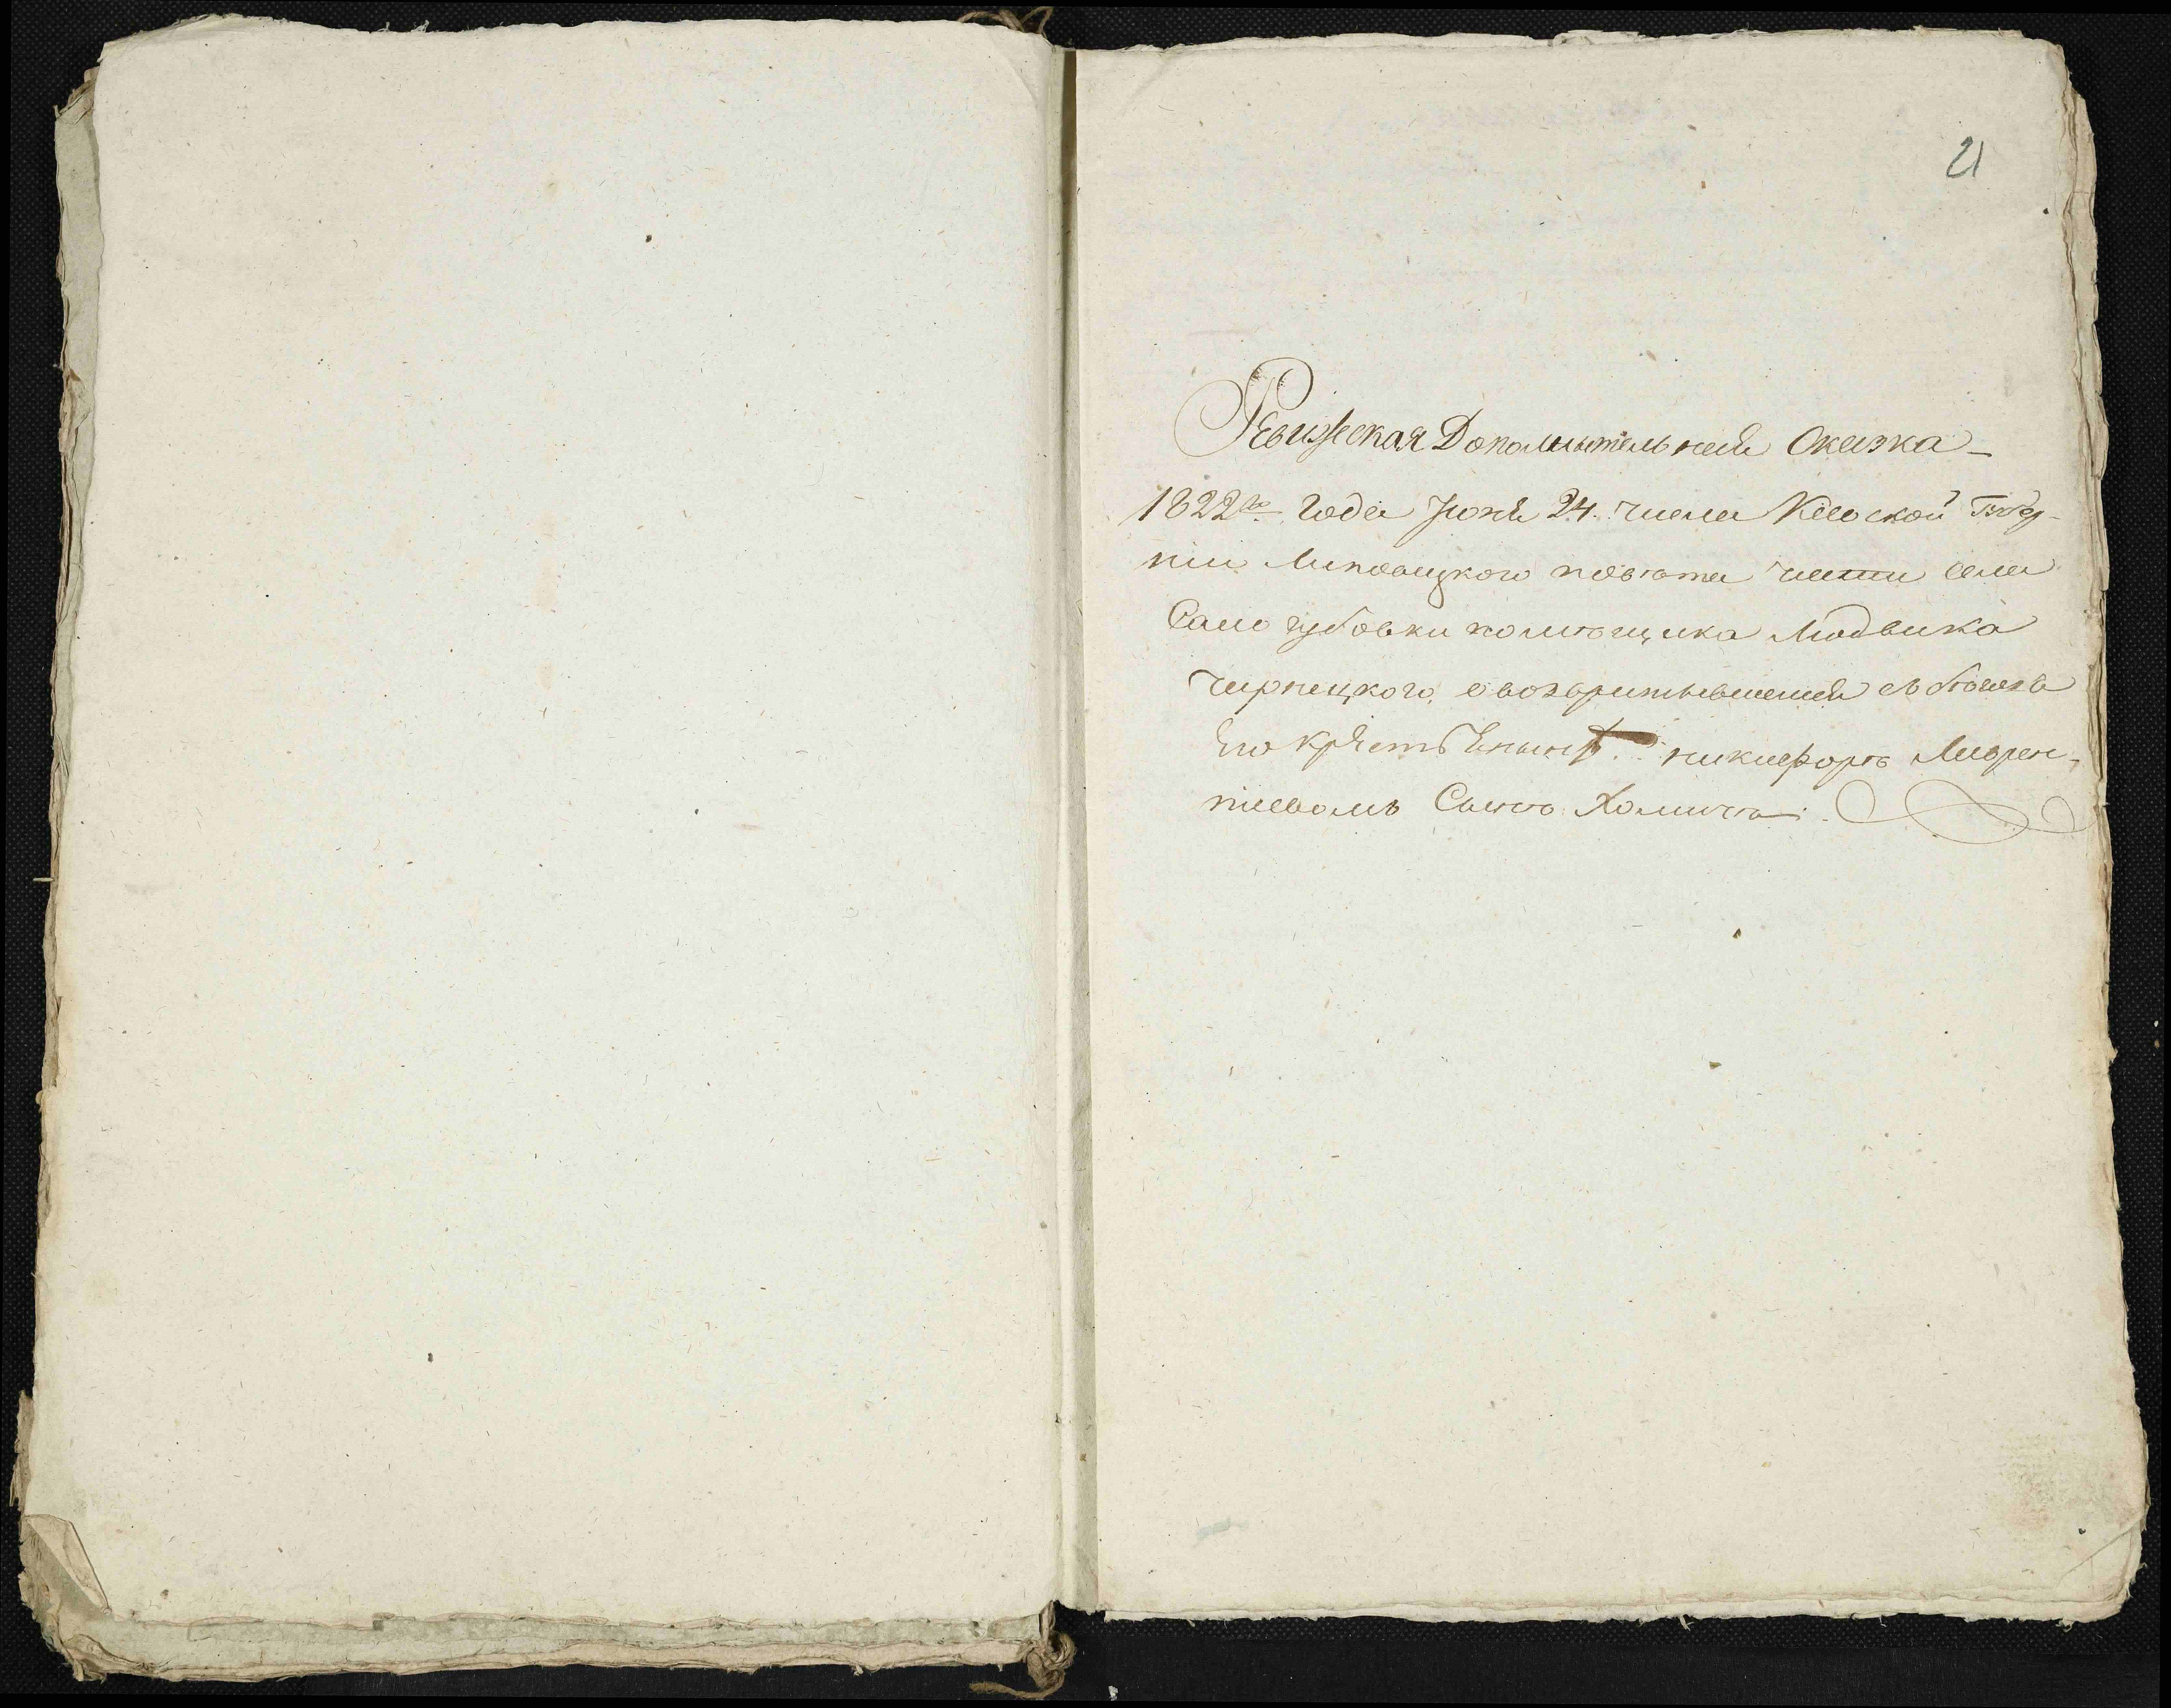 21
Ревижская Дополнительная Сказка
1822го. Года Июня 24. числа Киевской Губер-
нии Липовицкого повѣта части села
Само городки помѣщика Людвика
Чернецкого, о возвратившемся съ бѣговъ
Его Крестьянинѣ никифорѣ Лаврен-
тиевомъ Сынѣ Хомичѣ.